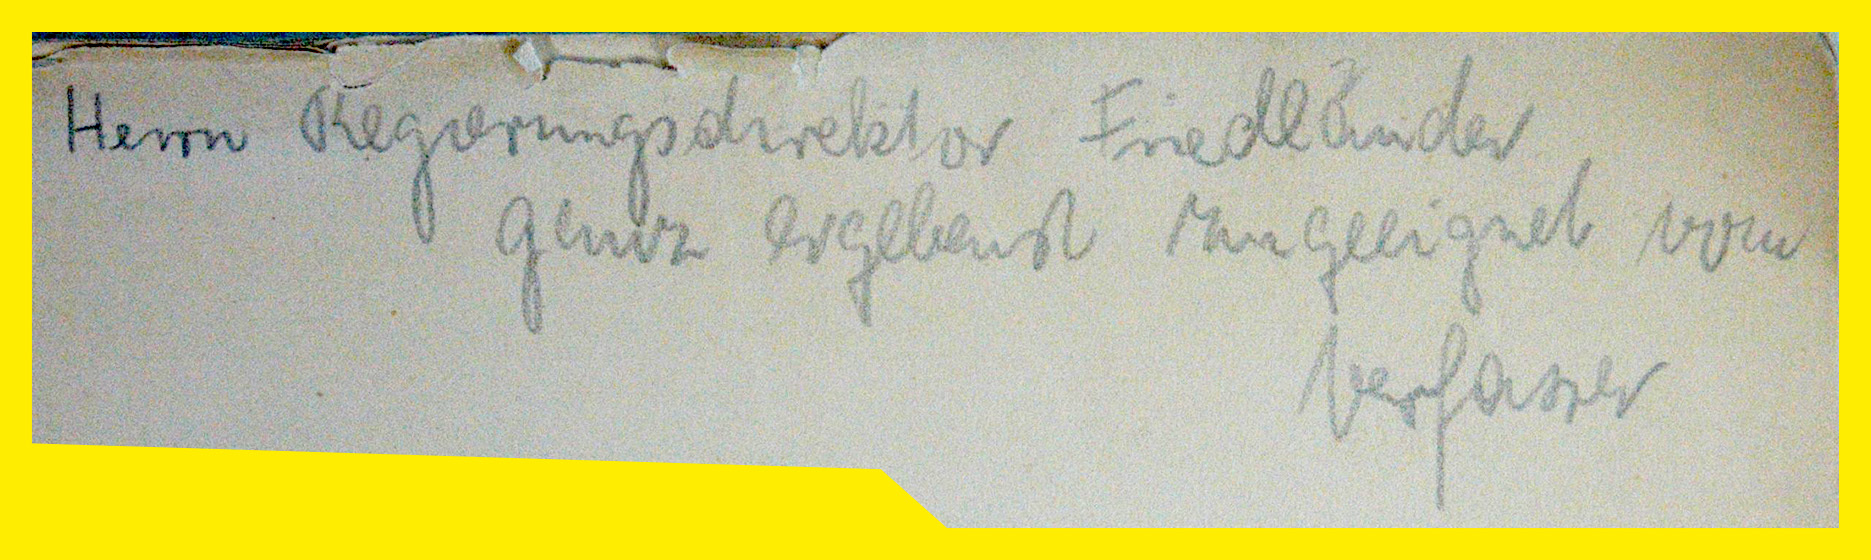 Herrn Regierungsdirektor Friedländer
ganz ergebenst zugeeignet vom
Verfasser